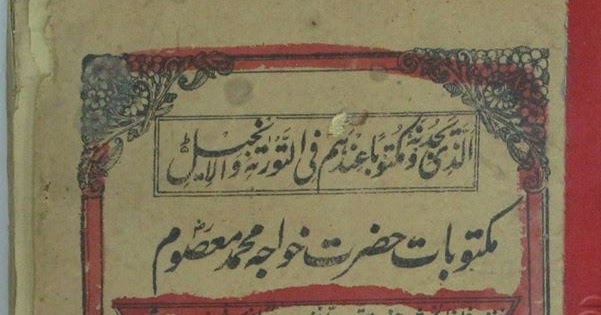 الَّذِي يَجِدُونَهُ مَكْتُوبًا عِنْدَهُمْ فِي التَّوْرَاةِ وَالْإِنْجِيلِ
مکتوبات حضرت خواجہ محمد معصوم رح